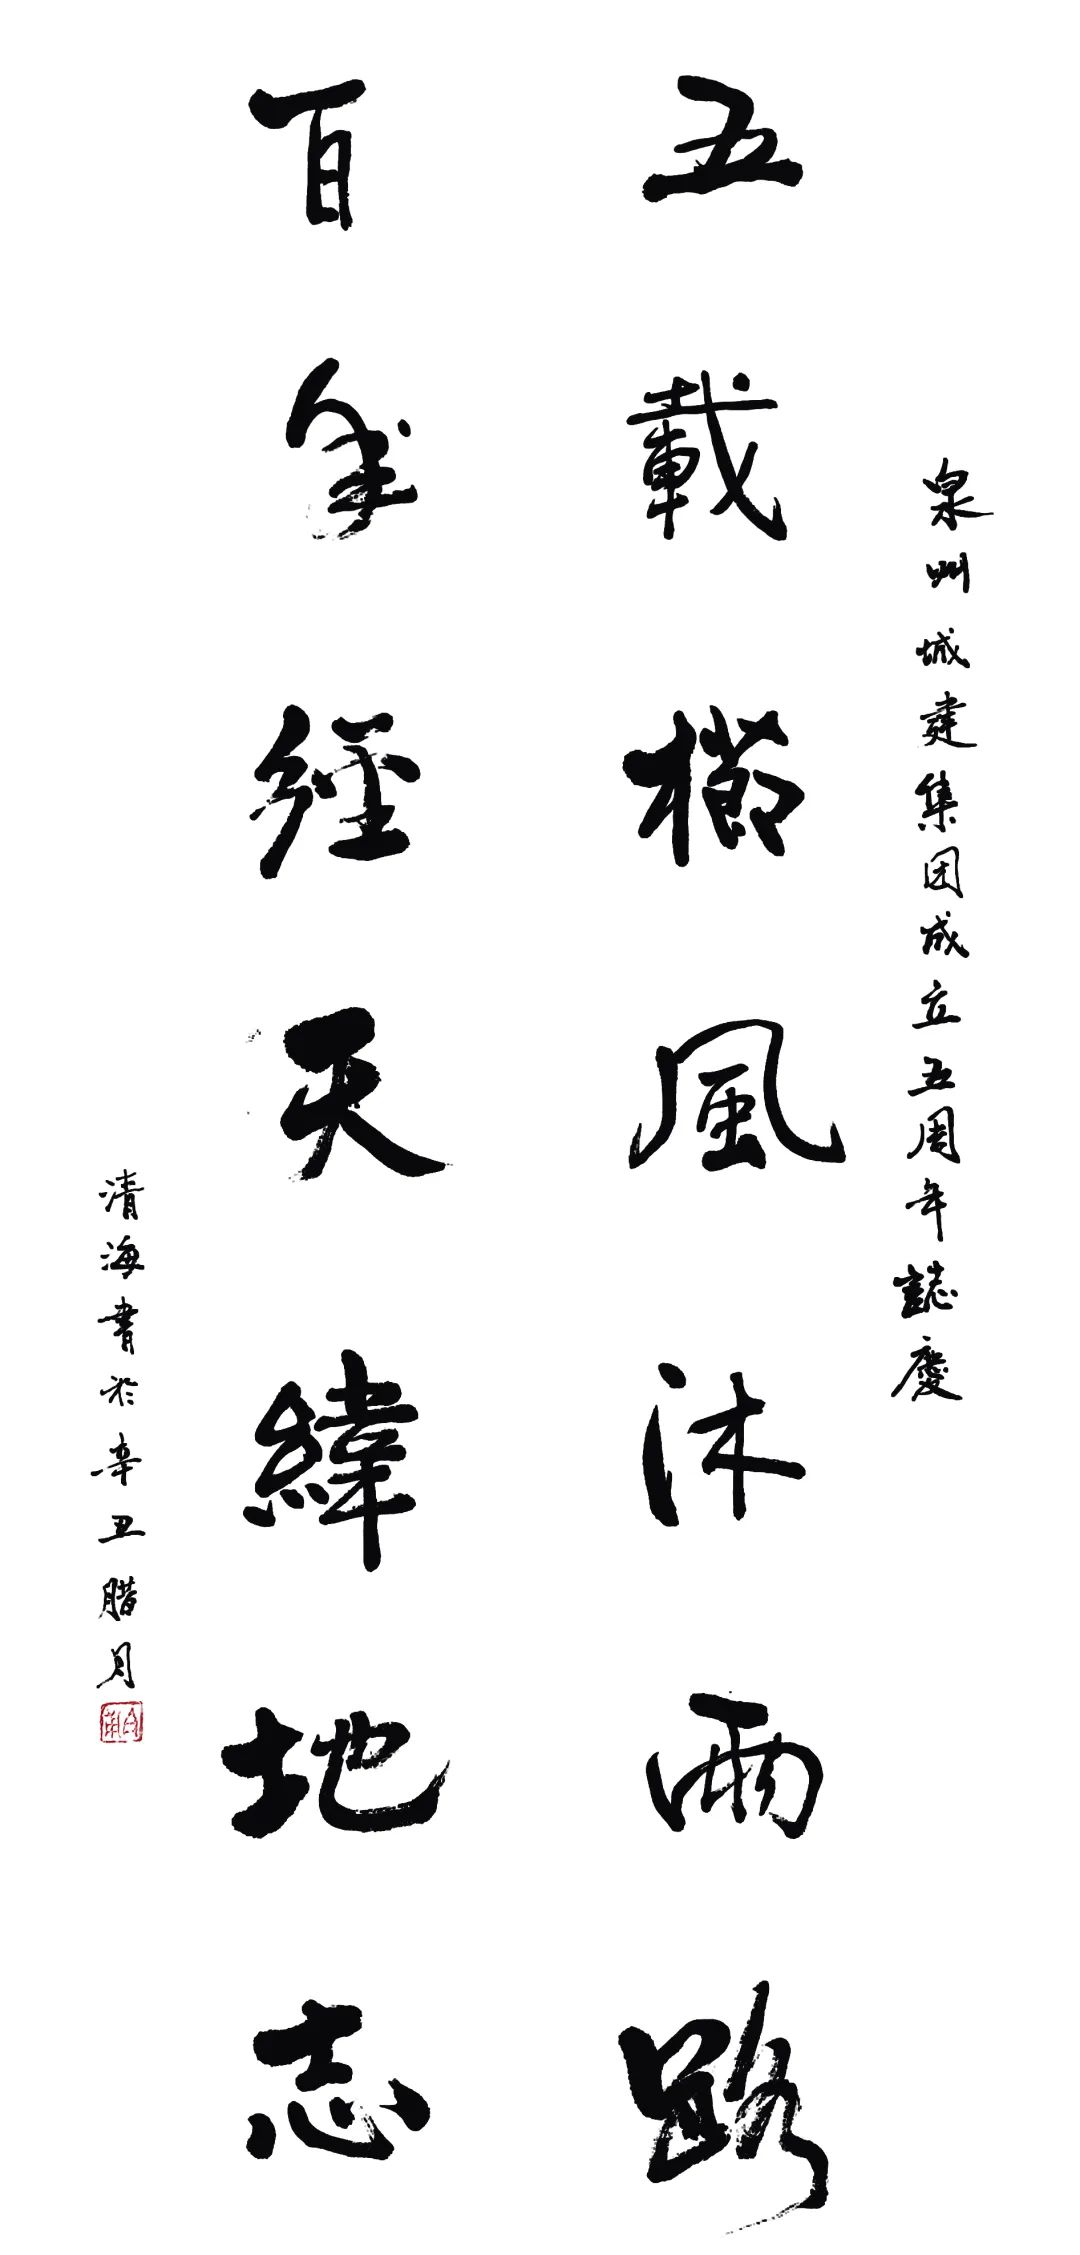 泉州城建集团成立五周年誌慶
五載櫛風沐雨路
百年經天緯地志
清海書於辛丑腊月